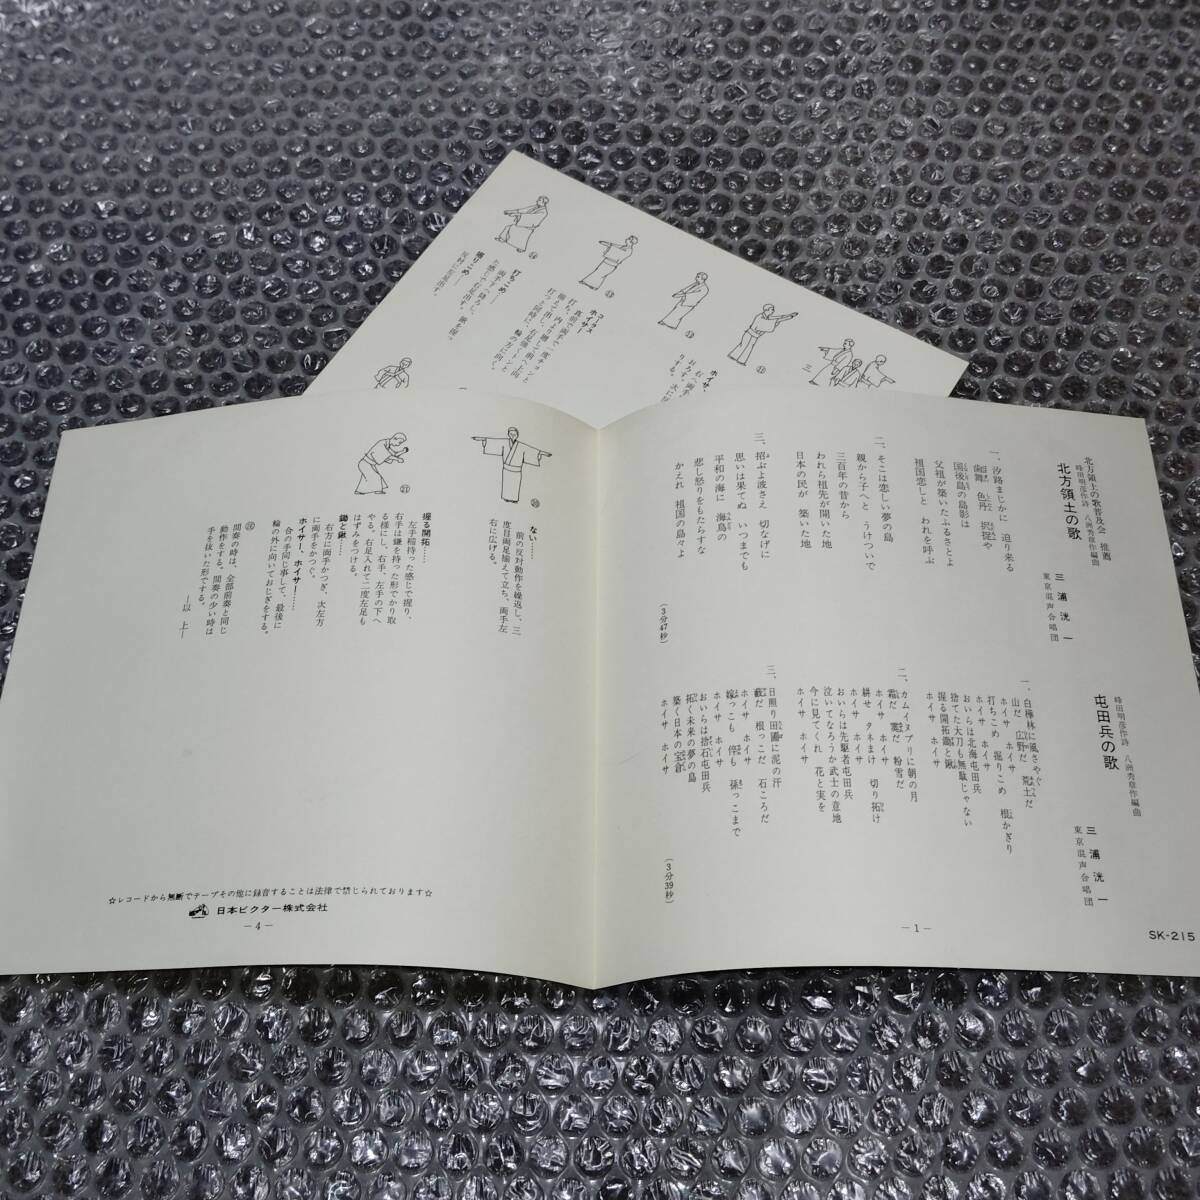 北方領土の歌普及会 推薦
峰田明彦作詩 八洲秀章作編曲
北方領土の歌
三浦洸一
東京混声合唱団
一、汐路まじかに 迫り来る
歯舞 色丹 択捉や
国後島の島影は
父祖が築いたふるさとよ
祖国恋しと われを呼ぶ
二、そこは恋しい夢の島
親から子へと うけついで
三百年の昔から
われら祖先が開いた地
日本の民が 築いた地
三、招ぶよ波さえ 切なげに
思いは果てぬ いつまでも
平和の海に 海鳥の
悲し怒りをもたらすな
かえれ 祖国の島々よ
(3分47秒)
峰田明彦作詩 八洲秀章作編曲
屯田兵の歌
三浦洸一
東京混声合唱団
一、白樺林に風さやぐ
山だ 広野だ 荒土だ
ホイサ ホイサ
打ちこめ 掘りこめ 根かぎり
ホイサ ホイサ
おいらは北海屯田兵
捨てた大刀も無駄じゃない
握る開拓鋤と鍬
ホイサ ホイサ
二、カムイヌプリに朝の月
霜だ 霙だ 粉雪だ
ホイサ ホイサ
耕せ タネまけ 切り拓け
ホイサ ホイサ
おいらは先駆者屯田兵
泣いてなろうか武士の意地
今に見てくれ 花と実を
ホイサ ホイサ
三、日照り田圃に泥の汗
藪だ 根っこだ 石ころだ
ホイサ ホイサ
嫁っこも 倅も 孫っこまで
ホイサ ホイサ
おいらは捨石屯田兵
拓く未来の夢の島
築く日本の宝倉
ホイサ ホイサ
(3分39秒)
—1—
SK-215
⑳
ない……
前の反対動作を繰返し、三
度目両足揃えて立ち、両手左
右に広げる。
㉑
握る開拓……
左手稲持った感じで握り、
右手は鎌を持った形でかり取
る様にし、右手、左手の下へ
やる。右足入れて二度左足も
はずみをつける。
鋤と鍬……
右方に両手かつぎ、次左方
に両手をかつぐ。
ホイサー、ホイサー……
合の手同じ事して、最後に
輪の外に向いておじぎをする。
㉒
間奏の時は、全部前奏と同じ
動作をする。間奏の少い時は
手を抜いた形でする。
—以 上—
☆レコードから無断でテープその他に録音することは法律で禁じられております☆
日本ビクター株式会社
—4—
コーラス
ホイサー
打こめ——
掘りこめ——